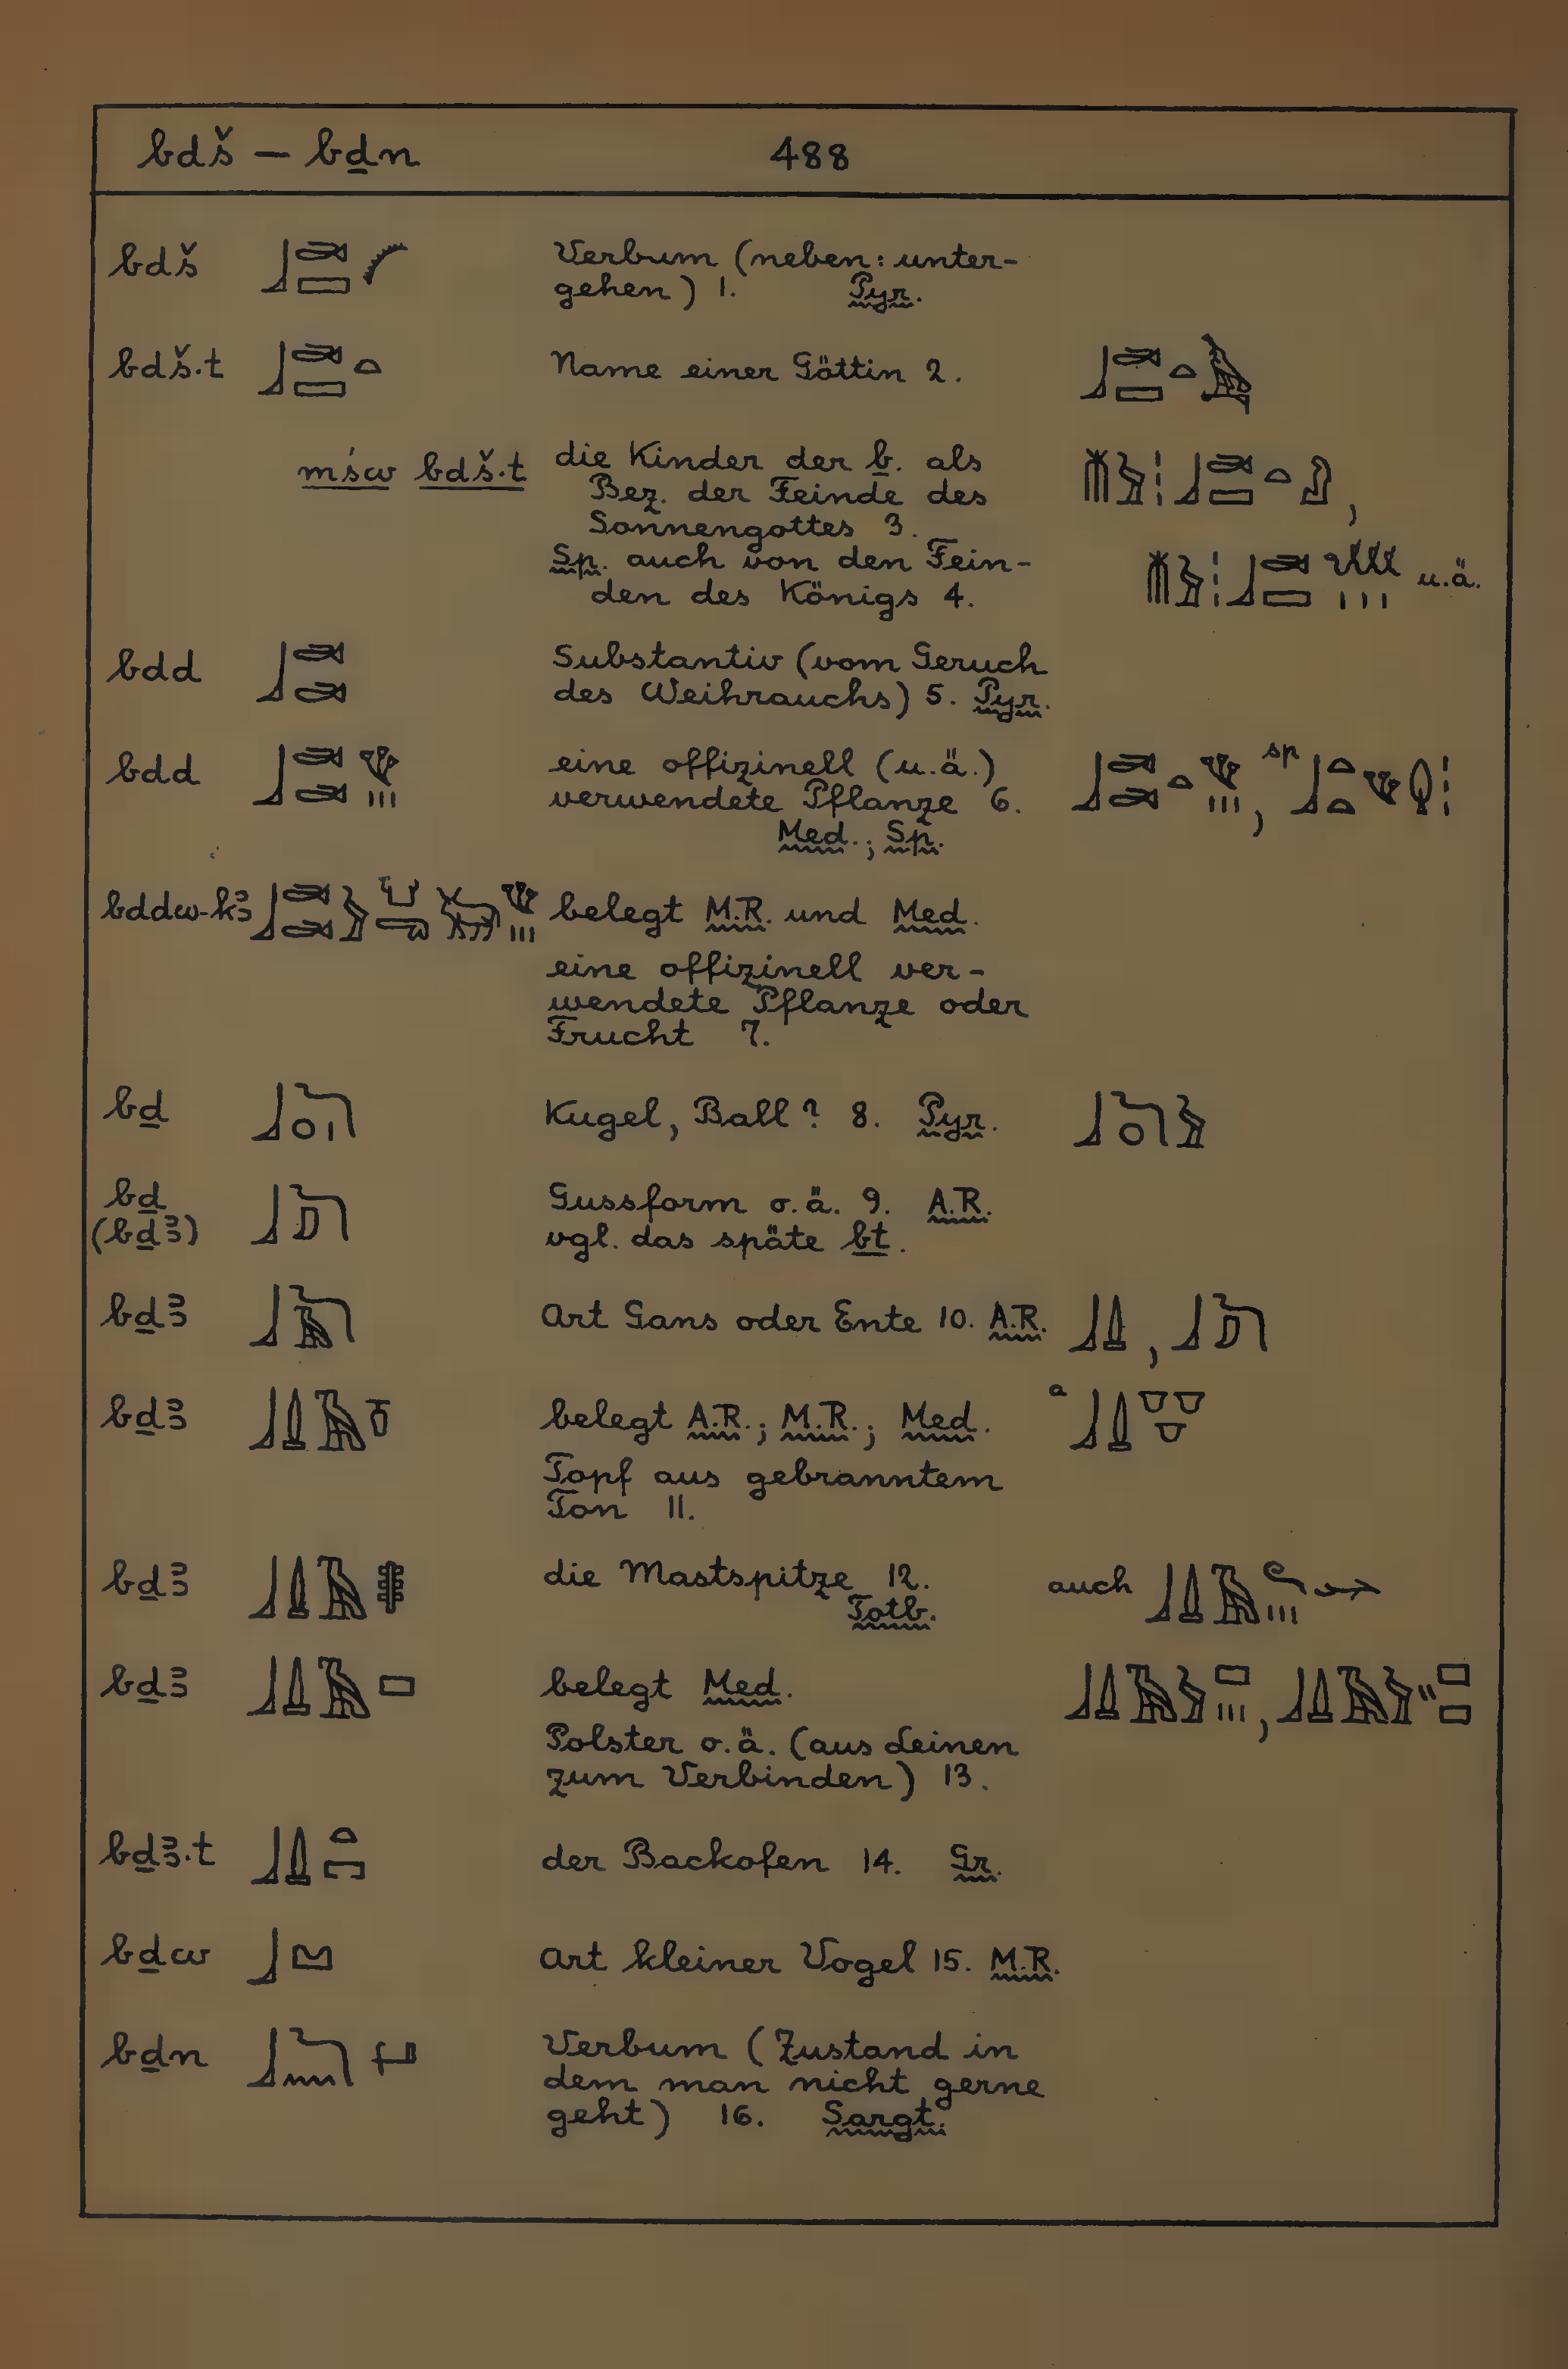 bdš — bḏn 488
bdš Verbum (neben: unter-
gehen) 1. Pyr.
bdš.t Name einer Göttin 2.
mśw bdš.t die Kinder der b. als
Bez. der Feinde des
Sonnengottes 3. ,
Sp. auch von den Fein-
den des Königs 4. u.ä.
bdd Substantiv (vom Geruch
des Weihrauchs) 5. Pyr.
bdd eine offizinell (u.ä.) sp
verwendete Pflanze 6. ,
Med.; Sp.
bddw-kꜣ belegt M.R. und Med.
eine offizinell ver-
wendete Pflanze oder
Frucht 7.
bḏ Kugel, Ball? 8. Pyr.
bḏ Gussform o.ä. 9. A.R.
(bḏꜣ) vgl. das späte bt.
bḏꜣ Art Gans oder Ente 10. A.R. ,
bḏꜣ belegt A.R.; M.R.; Med. a
Topf aus gebranntem
Ton 11.
bḏꜣ die Mastspitze 12. auch
Totb.
bḏꜣ belegt Med. ,
Polster o.ä. (aus Leinen
zum Verbinden) 13.
bḏꜣ.t der Backofen 14. Gr.
bḏw Art kleiner Vogel 15. M.R.
bḏn Verbum (Zustand in
dem man nicht gerne
geht) 16. Sargt.